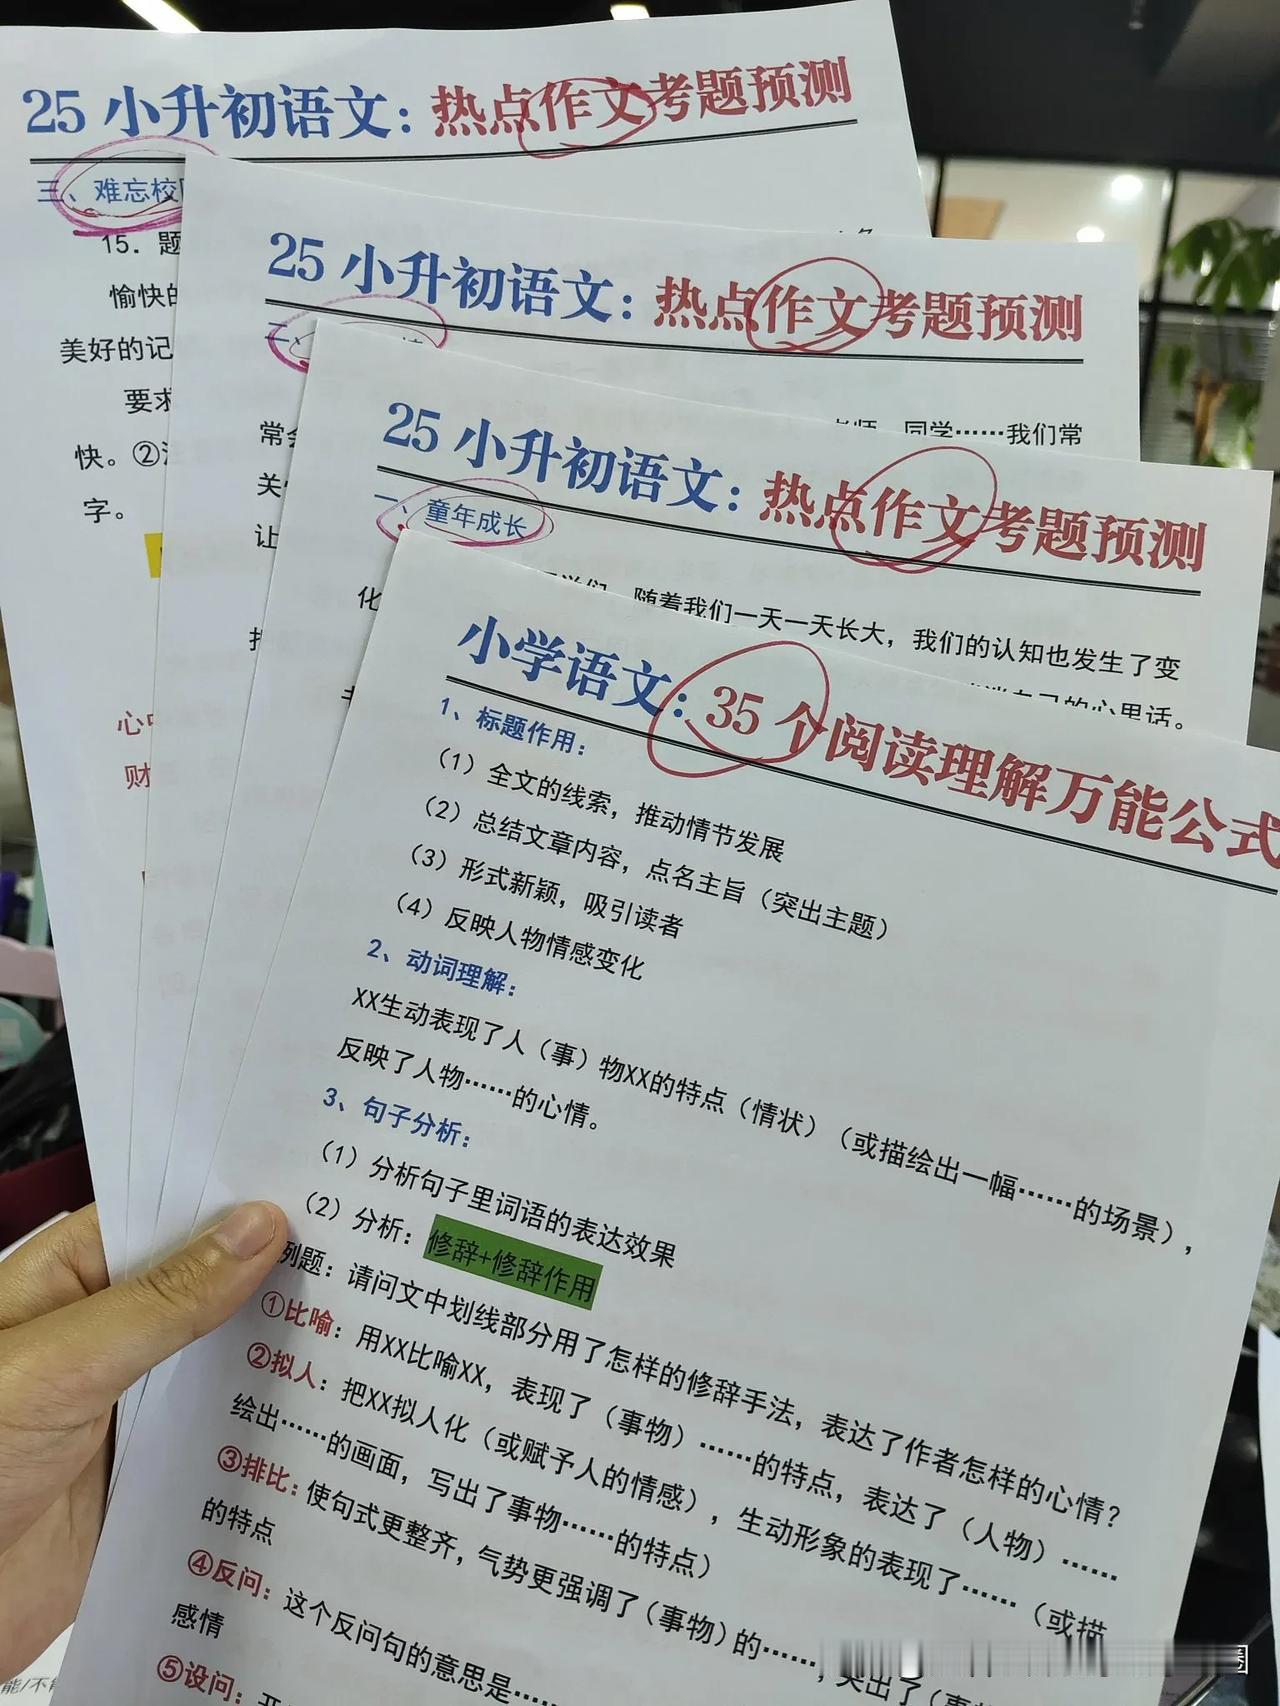 25 小升初语文：热点作文考题预测
三、难忘校
15．题
愉快的
美好的记
要求
快。②注
字。
心中
财
25 小升初语文：热点作文考题预测
老师、同学……我们常
常会
关
让
把
25 小升初语文：热点作文考题预测
一、童年成长
随着我们一天一天长大，我们的认知也发生了变
化
自己的心里话。
小学语文：35 个阅读理解万能公式
1、标题作用：
（1）全文的线索，推动情节发展
（2）总结文章内容，点名主旨（突出主题）
（3）形式新颖，吸引读者
（4）反映人物情感变化
2、动词理解：
XX生动表现了人（事）物XX的特点（情状）（或描绘出一幅……的场景），
反映了人物……的心情。
3、句子分析：
（1）分析句子里词语的表达效果
（2）分析：修辞+修辞作用
例题：请问文中划线部分用了怎样的修辞手法，表达了作者怎样的心情？
①比喻：用XX比喻XX，表现了（事物）……的特点，表达了（人物）……
②拟人：把XX拟人化（或赋予人的情感），生动形象的表现了……（或描
绘出……的画面，写出了事物……的特点）
③排比：使句式更整齐，气势更强调了（事物）的……，突出了（事物）
的特点
④反问：这个反问句的意思是……
感情
⑤设问：开